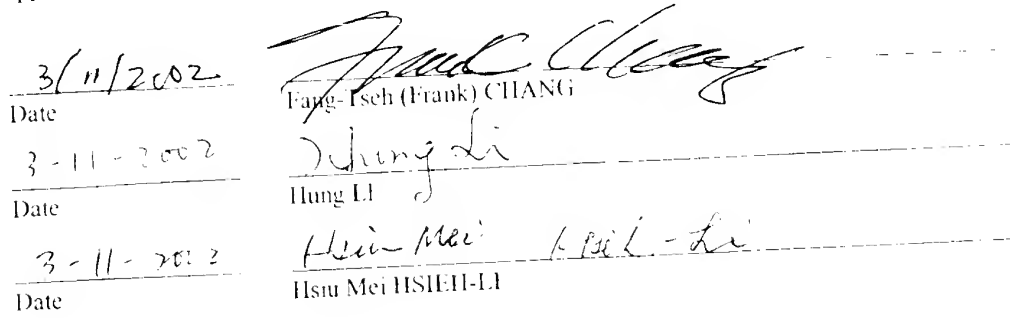 3/11/2002 Frank Chang
Date Fang-Tseh (Frank) CHANG
3-11-2002 Hung Li
Date Hung LI
3-11-2002 Hsiu Mei Hsieh-Li
Date Hsiu Mei HSIEH-LI